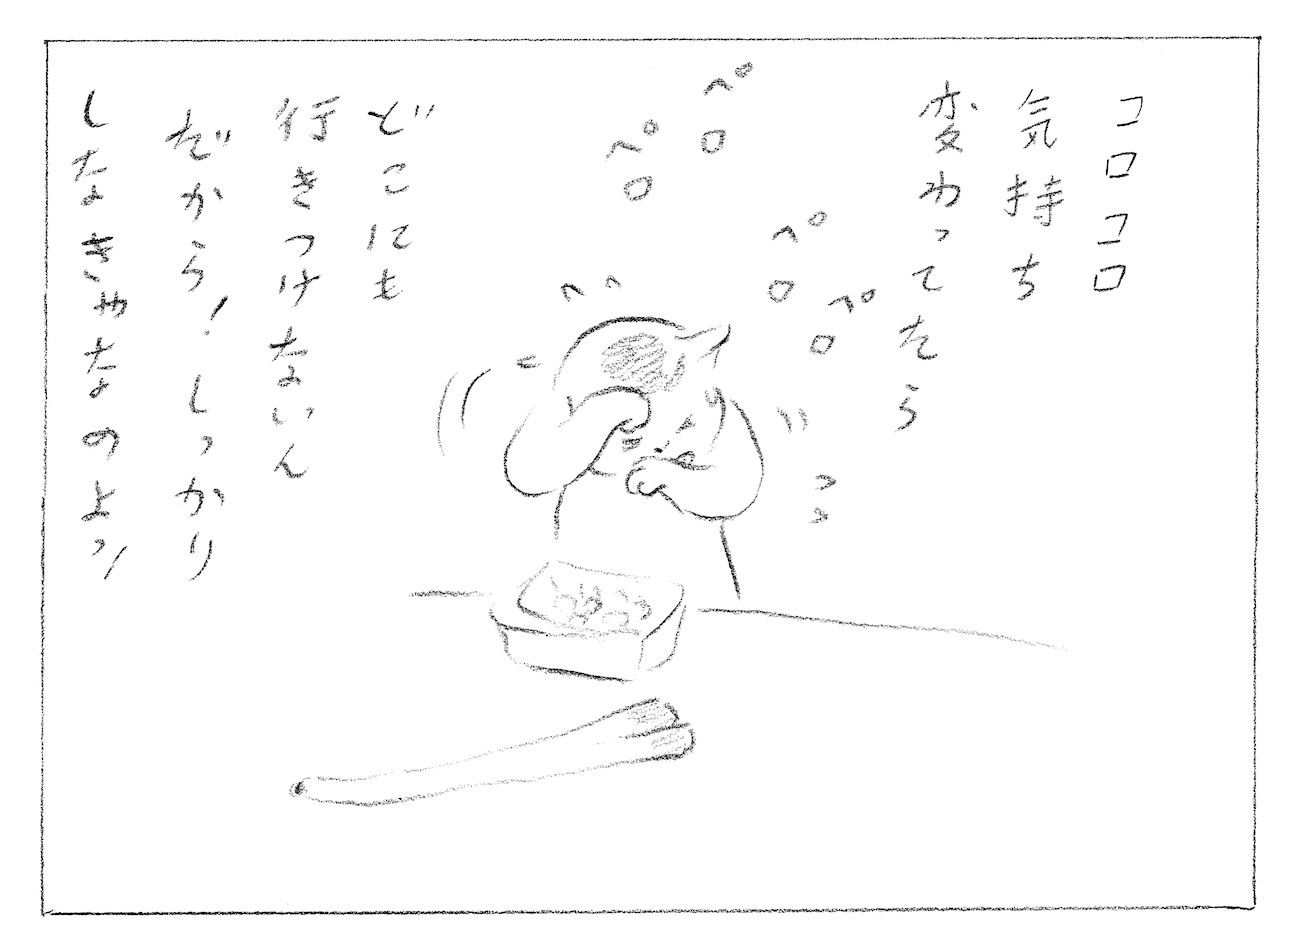 コロコロ
気持ち
変わってたら
ペロ
ペロ
ペロ
ペロ
どこにも
行きつけないん
だから！しっかり
しなきゃなのよッ！